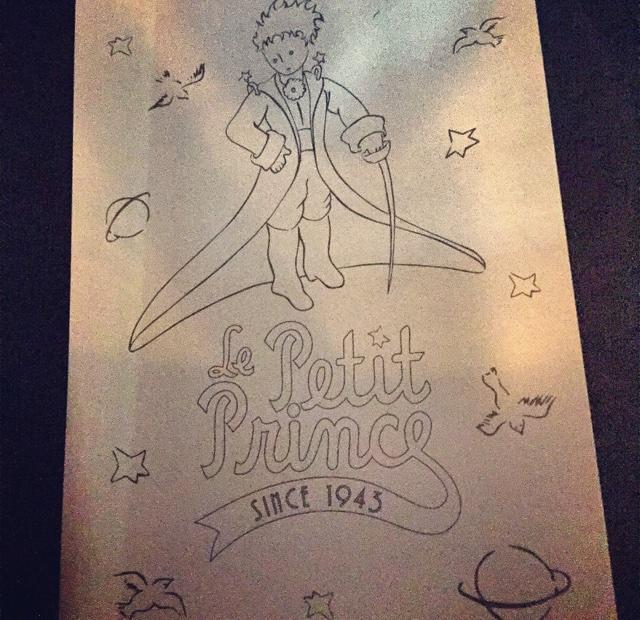 Le Petit
Prince
SINCE 1943